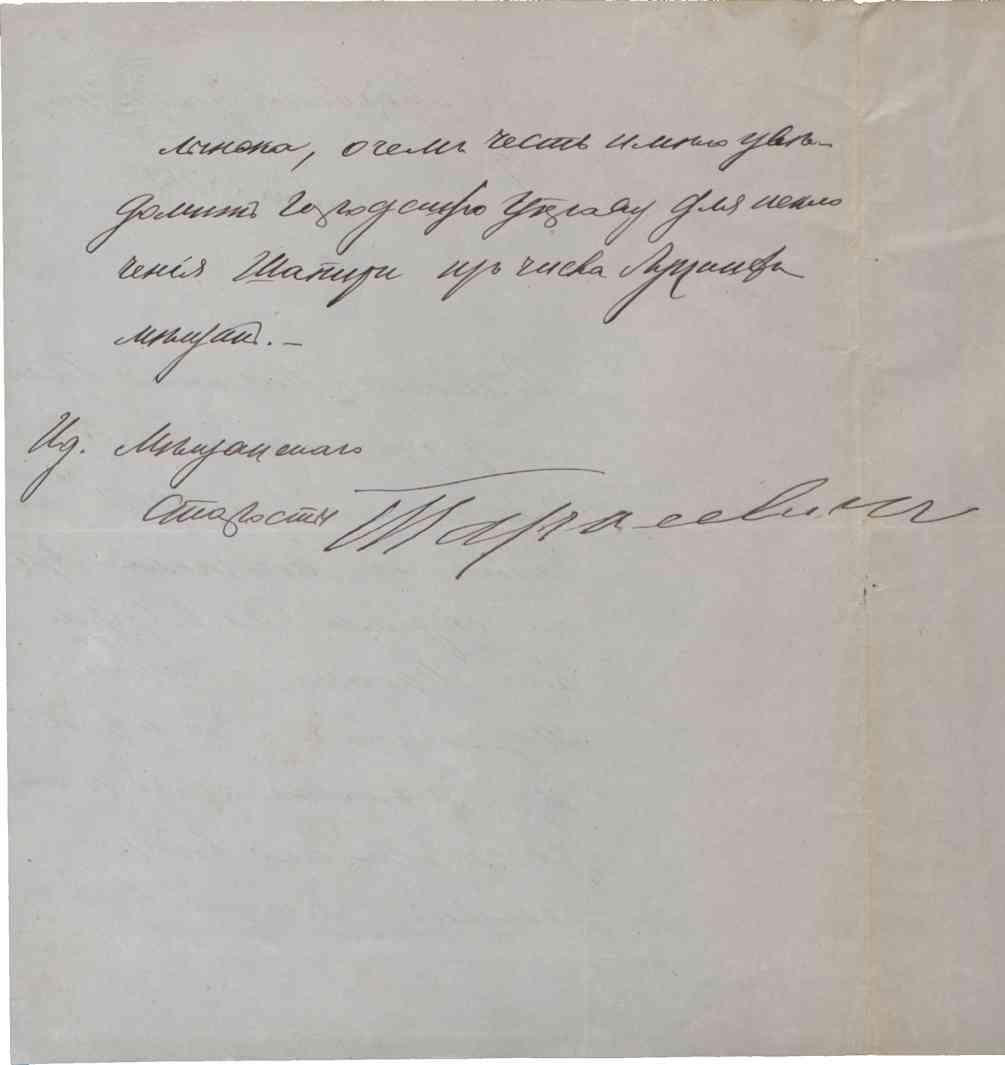 о чемъ честь имѣю увѣ-
домить Городскую Управу для исклю
ченія Шапиры изъ числа Луцкихъ
мѣщанъ.—
Ид. Мѣщанскаго
Старосты Тарасевичъ